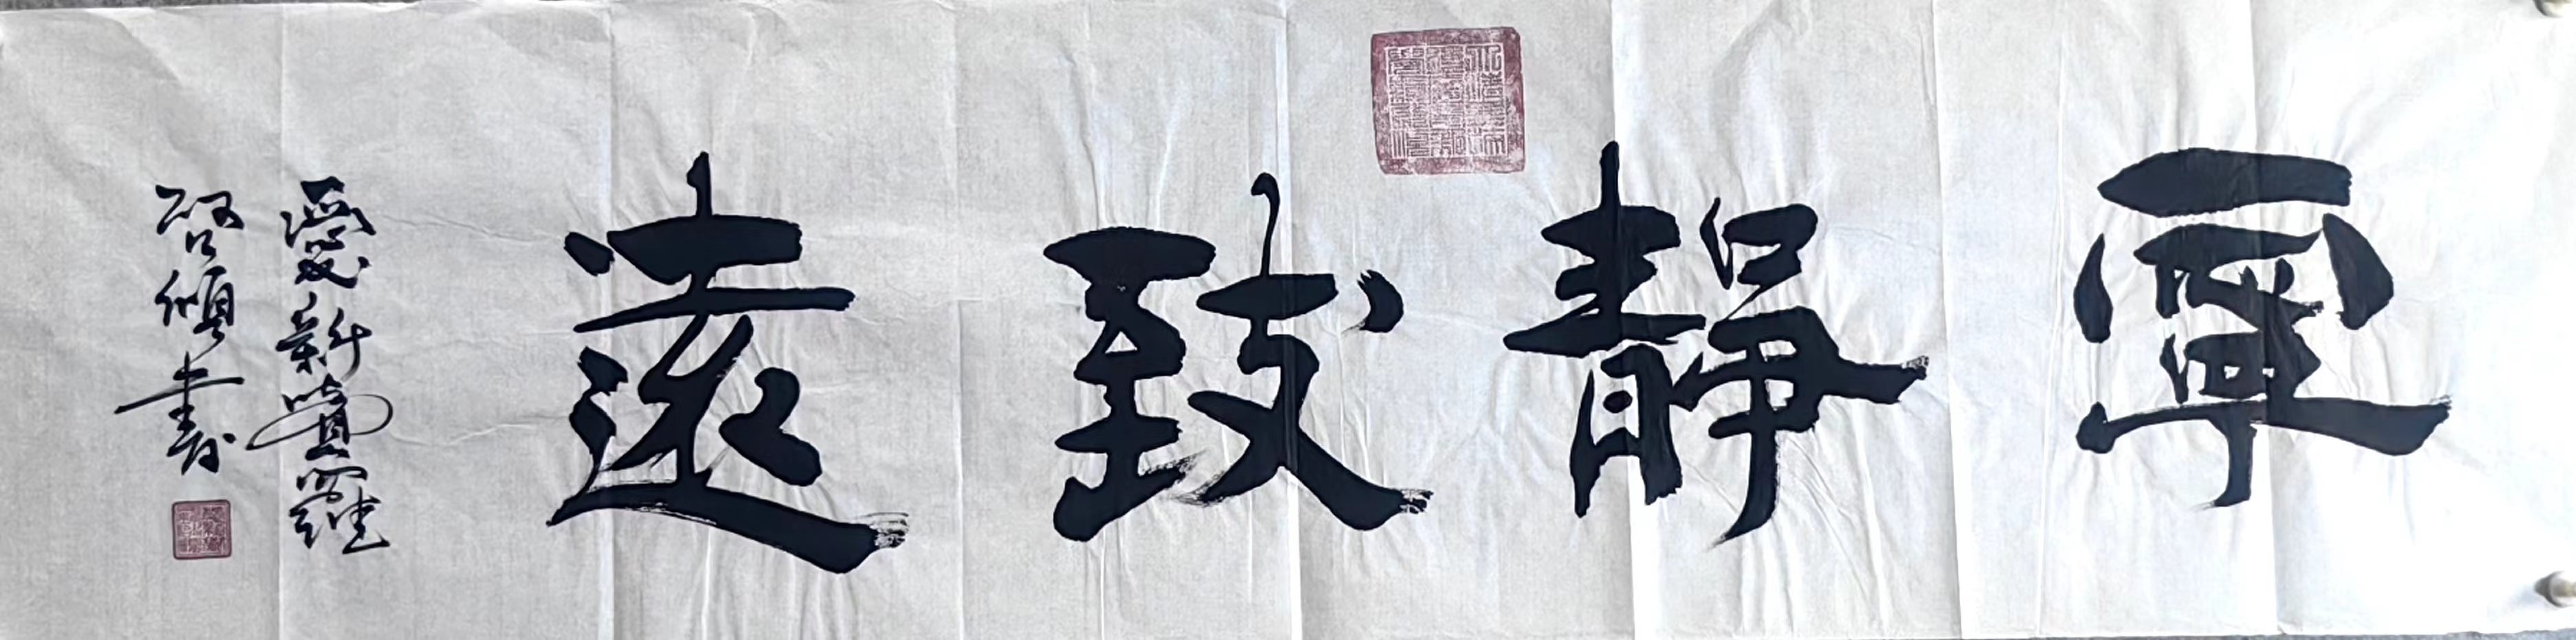 寧靜致遠
愛新覺羅
啓頌書